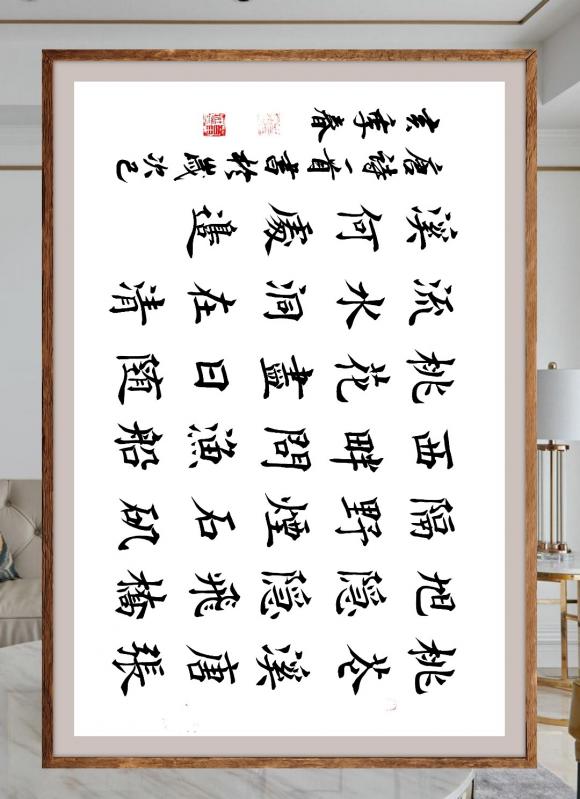 桃花溪唐張
旭隐隐飛橋
隔野煙石矶
西畔問漁船
桃花盡日随
流水洞在清
溪何處邊
唐詩一首書於歲次己
亥季春